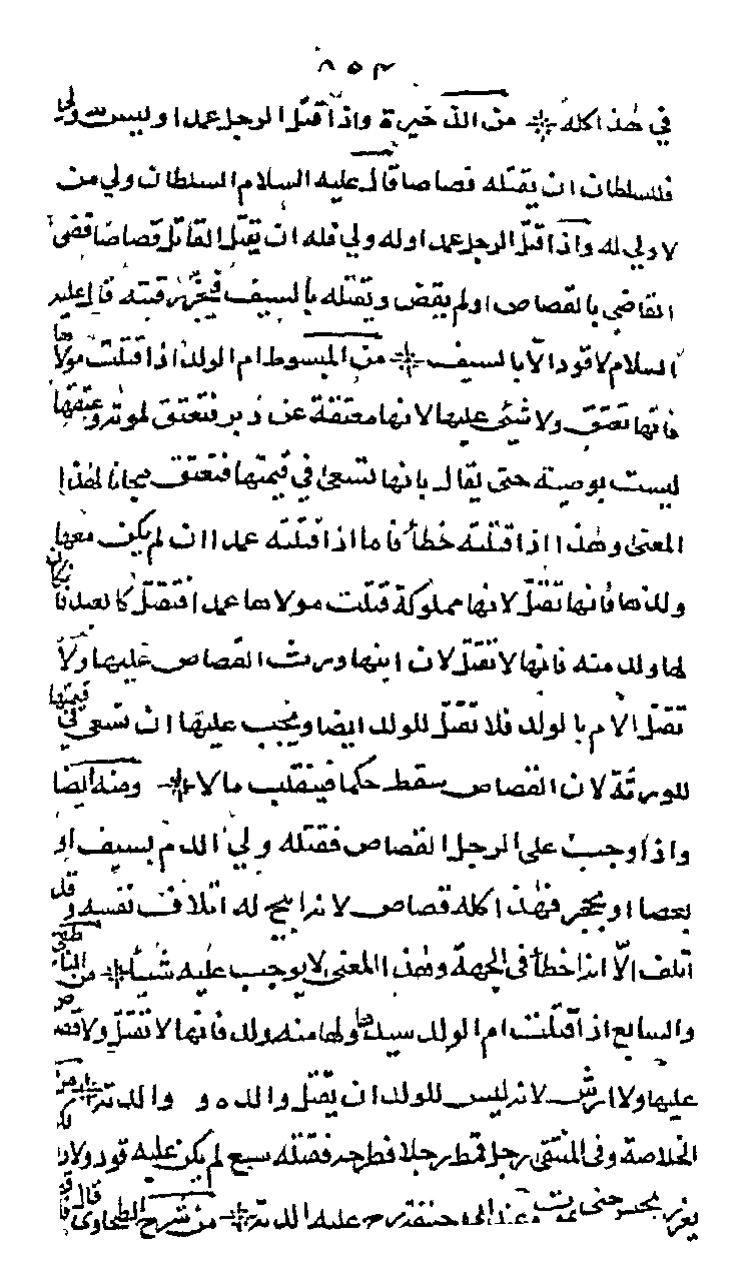 ٨٥٣
في هذا كله من الذخيرة واذا قتل الرجل عمدا وليس له ولي
فللسلطان ان يقتله قصاصا قال عليه السلام السلطان ولي من
لا ولي له واذا قتل الرجل عمدا وله ولي فله ان يقتل القاتل قصاصا قضى
القاضي بالقصاص او لم يقض ويقتله بالسيف فيحز رقبته قال عليه
السلام لا قود الا بالسيف من المبسوط ام الولد اذا قتلت مولاها
فانها تعتق ولا شيئ عليها لانها معتقة عن دبر فتعتق لموته وعتقها
ليست بوصية حتى يقال بانها تسعى في قيمتها فتعتق مجانا لهذا
المعنى وهذا اذا قتلته خطأ فاما اذا قتلته عمدا ان لم يكن معها
ولدها فانها تقتل لانها مملوكة قتلت مولاها عمدا فتقتل كالعبد فان كان
لها ولد منه فانها لا تقتل لان ابنها ورث القصاص عليها ولا
تقتل الام بالولد فلا تقتل للولد ايضا ويجب عليها ان تسعى في قيمتها
للورثة لان القصاص سقط حكما فينقلب مالا ومنه ايضا
واذا وجب على الرجل القصاص فقتله ولي الدم بسيف او
بعصا او بحجر فهذا كله قصاص لانه ابيح له اتلاف نفسه وقد
اتلف الا انه اخطأ في الجهة وهذا المعنى لا يوجب عليه شيئا من
والسابع اذا قتلت ام الولد سيدها ولها منه ولد فانها لا تقتل ولا
عليها ولا ارش لانه ليس للولد ان يقتل والده و والدته
الخلاصة وفى المنتقى رجل قمط رجلا فطرحه فقتله سبع لم يكن عليه قود ولا
يعزر بحبس حتى يموت وعند ابي حنيفة رح عليه الدية من شرح الطحاوى